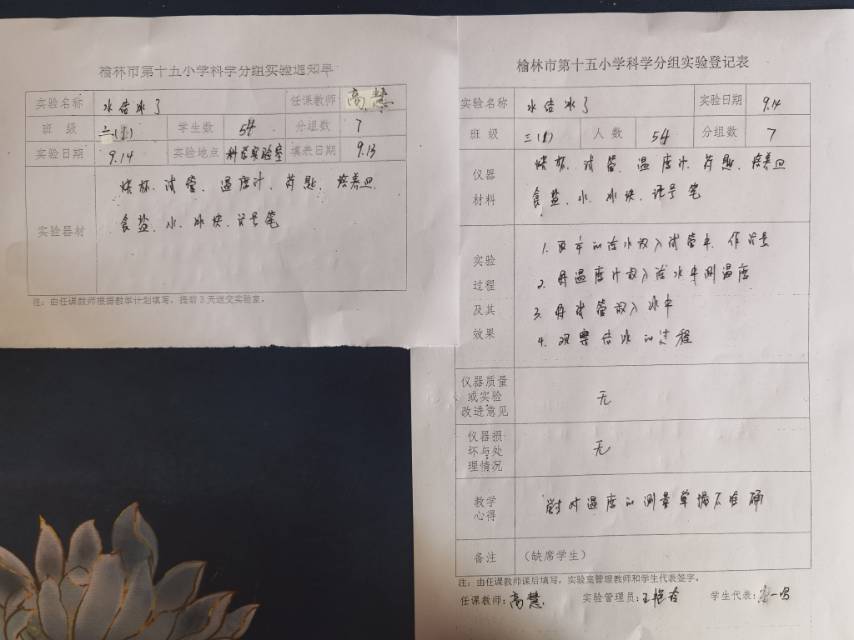 榆林市第十五小学科学分组实验通知单
实验名称 水结冰了 任课教师 高慧
班级 三(1) 学生数 54 分组数 7
实验日期 9.14 实验地点 科学实验室 填表日期 9.13
实验器材
烧杯、试管、温度计、药匙、培养皿
食盐、水、冰块、记号笔
注:由任课教师根据教学计划填写,提前3天送交实验室。
榆林市第十五小学科学分组实验登记表
实验名称 水结冰了 实验日期 9.14
班级 三(1) 人数 54 分组数 7
仪器材料
烧杯、试管、温度计、药匙、培养皿
食盐、水、冰块、记号笔
实验过程及其效果
1. 的冷水放入试管中、作记号
2. 将温度计放入冷水中测温度
3. 将试管放入冰中
4. 观察结冰的过程
仪器质量或实验改进意见 无
仪器损坏与处理情况 无
教学心得 对温度的测量掌握不准确
备注 (缺席学生)
注:由任课教师课后填写,实验室管理教师和学生代表签字。
任课教师:高慧 实验管理员:王 学生代表: